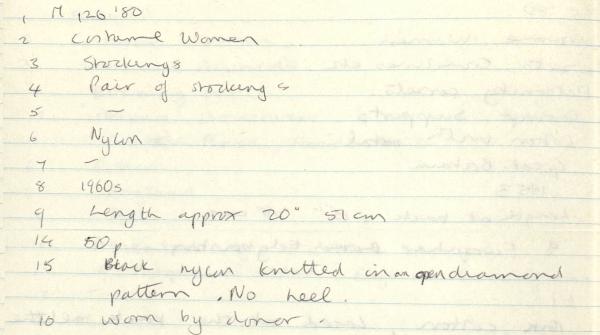 1 M 126 '80
2 Costume Women
3 Stockings
4 Pair of stockings
5 —
6 Nylon
7 —
8 1960s
9 Length approx 20" 51cm
14 50p
15 Black nylon knitted in an open diamond
pattern. No heel.
10 Worn by donor.